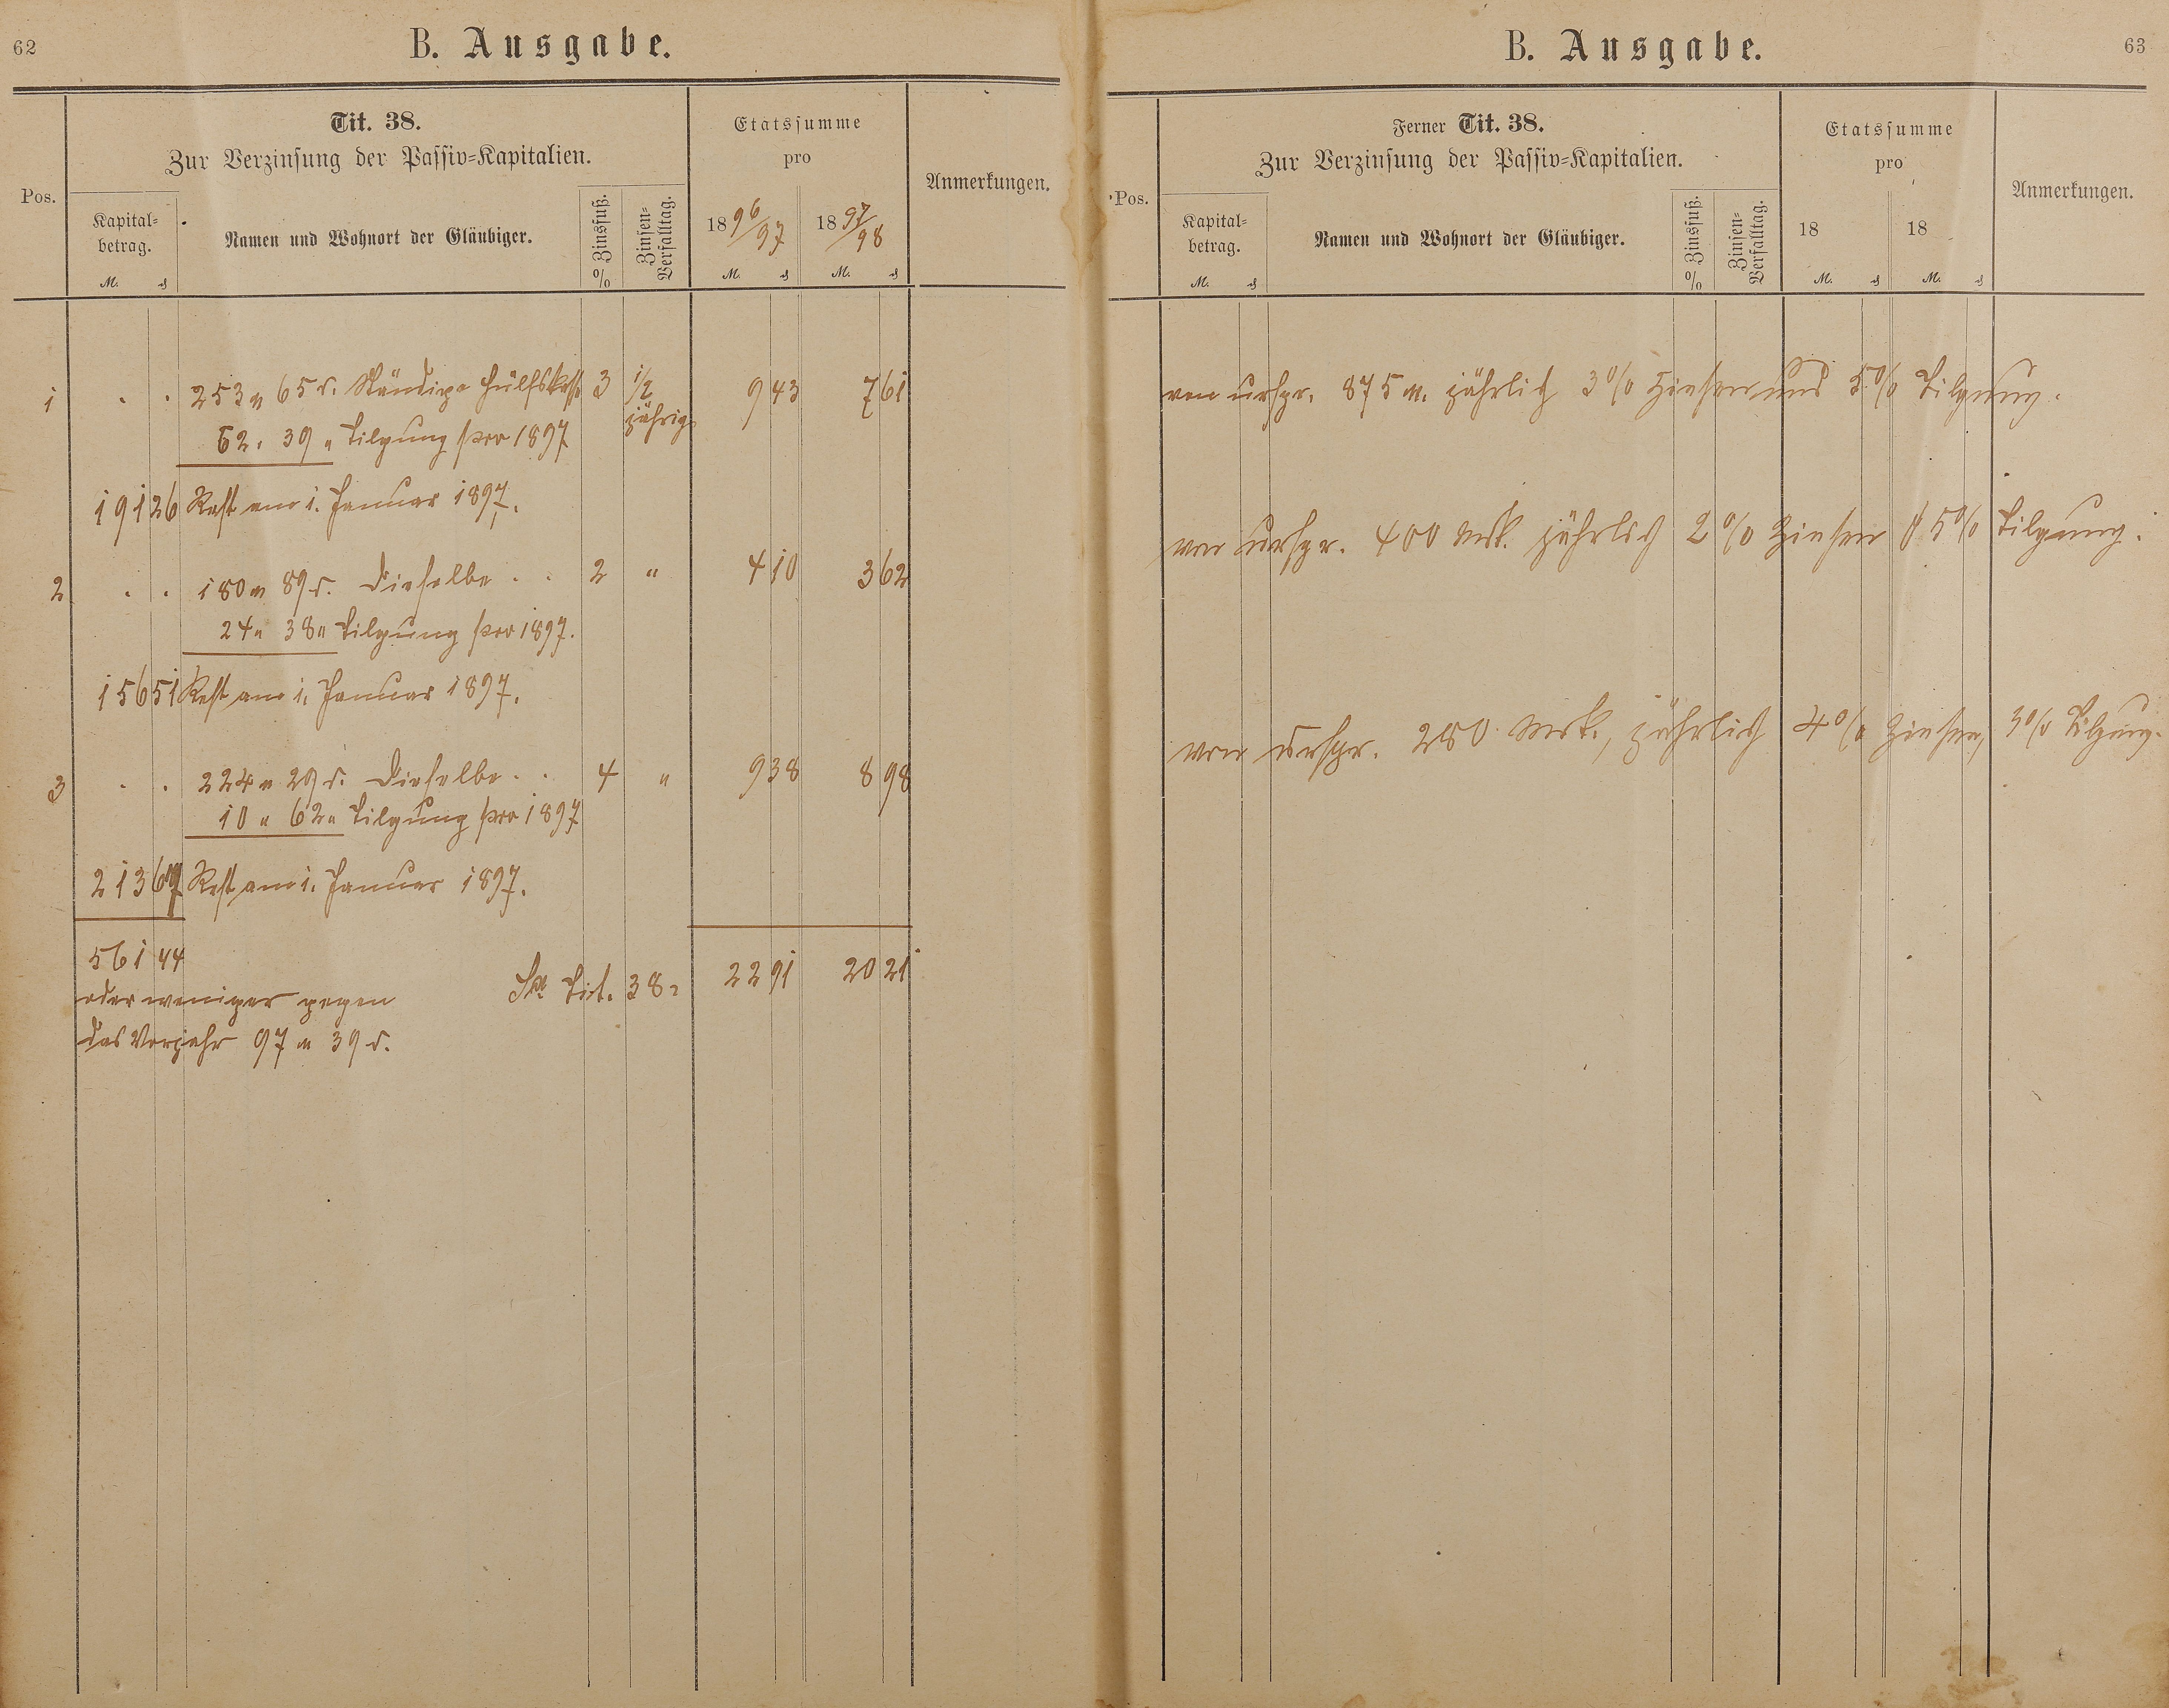 62
B. Ausgabe.
Tit. 38.
Zur Verzinsung der Passiv-Kapitalien.
Pos.
Kapital-
betrag.
M. ₰
Namen und Wohnort der Gläubiger.
Zinsfuß.
%
Zinsen-
Verfalltag.
Etatssumme
pro
1896/97 1897/98
M. ₰ M. ₰
Anmerkungen.
1 . . 253 M 65 ₰. Ständige Hülfskasse 3 1/2 9 43 7 61
62. 39 " Tilgung pro 1897 jährig
191 26 Rest am 1. Januar 1897.
2 . . 180 M 89 ₰. Dieselbe . . 2 " 4 10 3 62
24 " 38 " Tilgung pro 1897.
156 51 Rest am 1. Januar 1897.
3 . . 224 M 29 ₰. Dieselbe . . 4 " 9 38 8 98
10 " 62 " Tilgung pro 1897
213 67 Rest am 1. Januar 1897.
561 44
Sa. Tit. 38 = 22 91 20 21
oder weniger gegen
das Vorjahr 97 M 39 ₰.
B. Ausgabe.
63
Ferner Tit. 38.
Zur Verzinsung der Passiv-Kapitalien.
Pos.
Kapital-
betrag.
M. ₰
Namen und Wohnort der Gläubiger.
Zinsfuß.
%
Zinsen-
Verfalltag.
Etatssumme
pro
18 18
M. ₰ M. ₰
Anmerkungen.
von urspr. 875 M. jährlich 3% Zinsen und 5% Tilgung.
von urspr. 400 Mrk. jährlich 2% Zinsen & 5% Tilgung.
von urspr. 250 Mrk., jährlich 4% Zinsen, 3% Tilgung.